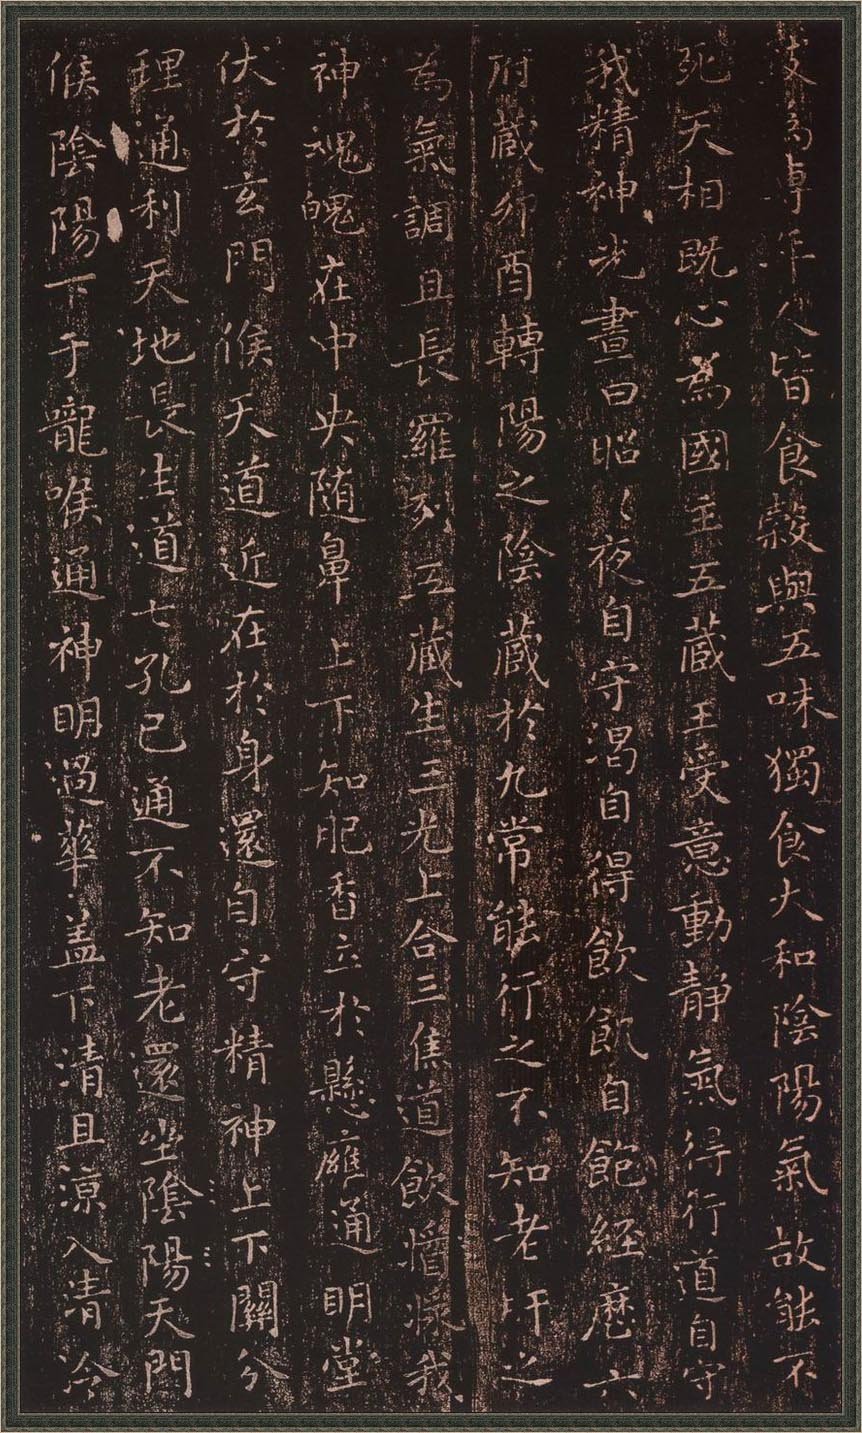 文為專年人皆食穀與五味獨食大和陰陽氣故能不
死天相既心為國主五藏王受意動靜氣得行道自守
我精神光晝日昭〻夜自守渴自得飲飢自飽經歷六
府藏卯酉轉陽之陰藏於九常能行之不知老肝之
為氣調且長羅列五藏生三光上合三焦道飲漿我
神魂魄在中央隨鼻上下知肥香立於懸廱通明堂
伏於玄門候天道近在於身還自守精神上下關分
理通利天地長生道七孔已通不知老還坐陰陽天門
候陰陽下于嚨喉通神明過華蓋下清且涼入清冷